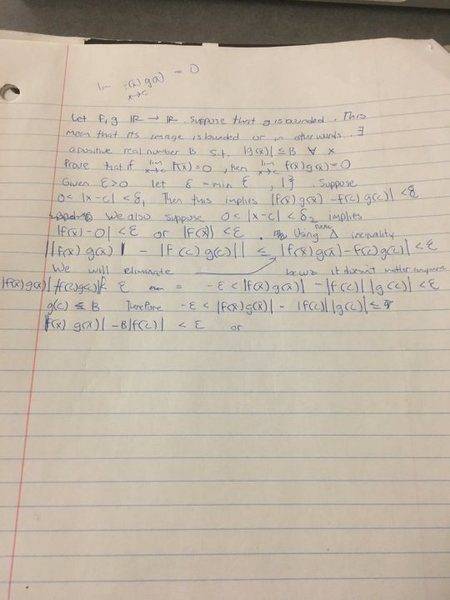 lim f(x) g(x) = 0
x→c
Let f, g ℝ → ℝ. Suppose that g is bounded. This
mean that its image is bounded or in other words ∃
a positive real number B s.t. |g(x)| ≤ B ∀ x
Prove that if lim x→c f(x) = 0, then lim x→c f(x)g(x) = 0
Given ε>0 let δ = min { , 1}. Suppose
0< |x-c| < δ₁ Then this implies |f(x)g(x) - f(c)g(c)| < ε
We also suppose 0< |x-c| < δ₂ implies
|f(x)-0| < ε or |f(x)| < ε. Using Δ inequality
||f(x)g(x)| - |f(c)g(c)|| ≤ |f(x)g(x) - f(c)g(c)| < ε
We will eliminate it doesn't matter anymore
|f(x)g(x)| |f(c)g(c)| < ε = -ε < |f(x)g(x)| - |f(c)||g(c)| < ε
g(c) ≤ B Therefore -ε < |f(x)g(x)| - |f(c)||g(c)| ≤
f(x) g(x)| - B|f(c)| < ε or